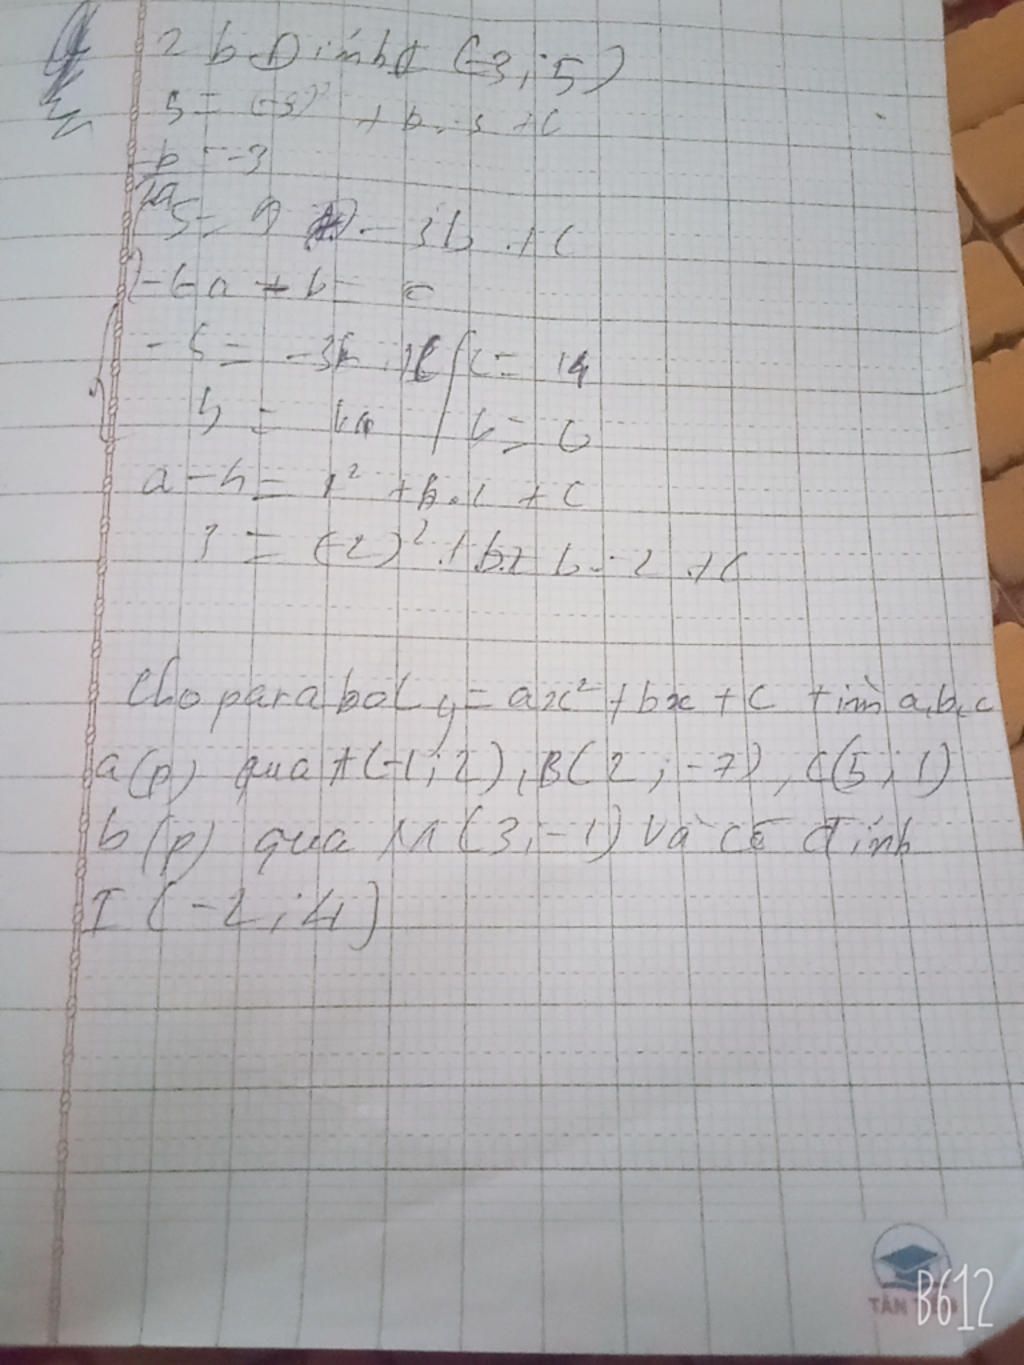 2 b Đỉnh I (-3; 5)
5 = (-3)² + b. -3 + c
-b/2a = -3
5 = 9 - 3b + c
-6a + b = 0
-5 = -3b + c c = 14
b = 6a b = 6
a -4 = 1² + b.1 + c
3 = (-2)² + b. -2 + c
Cho parabol y = ax² + bx + c tìm a, b, c
a (p) qua A (-1; 2), B( 2; -7), C(5; 1)
b (p) qua M (3; -1) và có đỉnh
I (-2; 4)
TÂN
B612